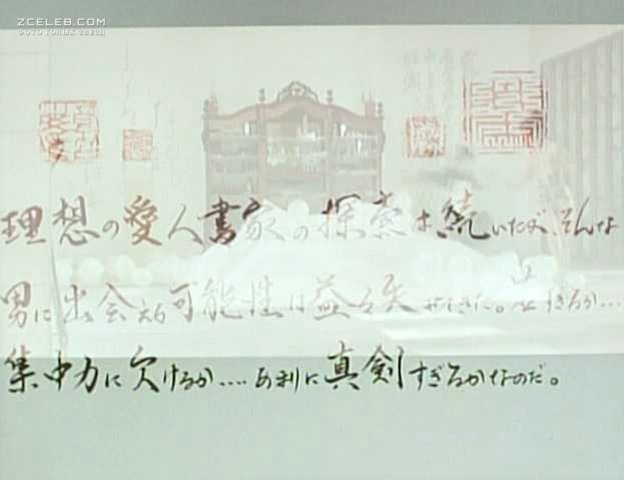 ZCELEB.COM
ФОТО ГОЛЫХ ЗВЕЗД
理想の愛人書家の探索は続いたが、そんな
男に出会える可能性は益々
集中力に欠けるか....あまりに真剣すぎるかなのだ。